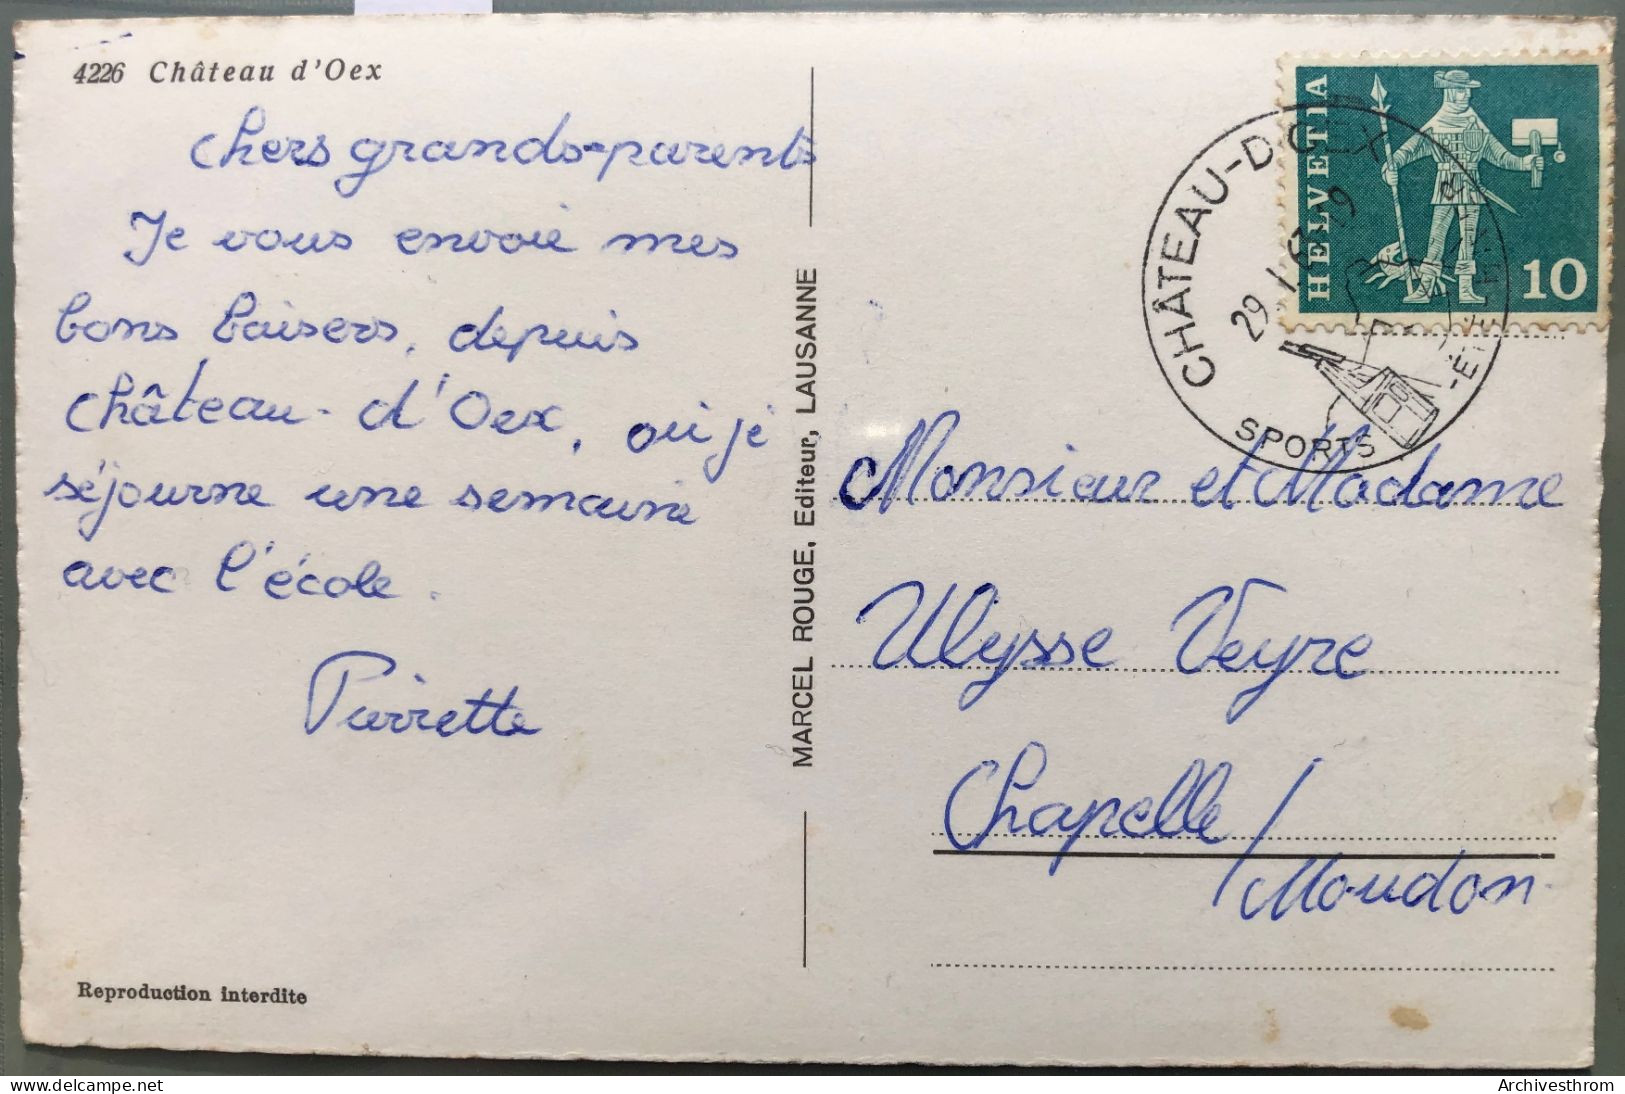 4226 Château d'Oex
Chers grands-parents
Je vous envoie mes
bons baisers, depuis
Château-d'Oex, où je
séjourne une semaine
avec l'école.
Pierrette
Reproduction interdite
MARCEL ROUGE, Editeur, LAUSANNE
HELVETIA
10
CHÂTEAU-D'OEX
29.1.6
SPORTS
Monsieur et Madame
Ulysse Veyre
Chapelle/
Moudon
Archivesthrom
www.delcampe.net